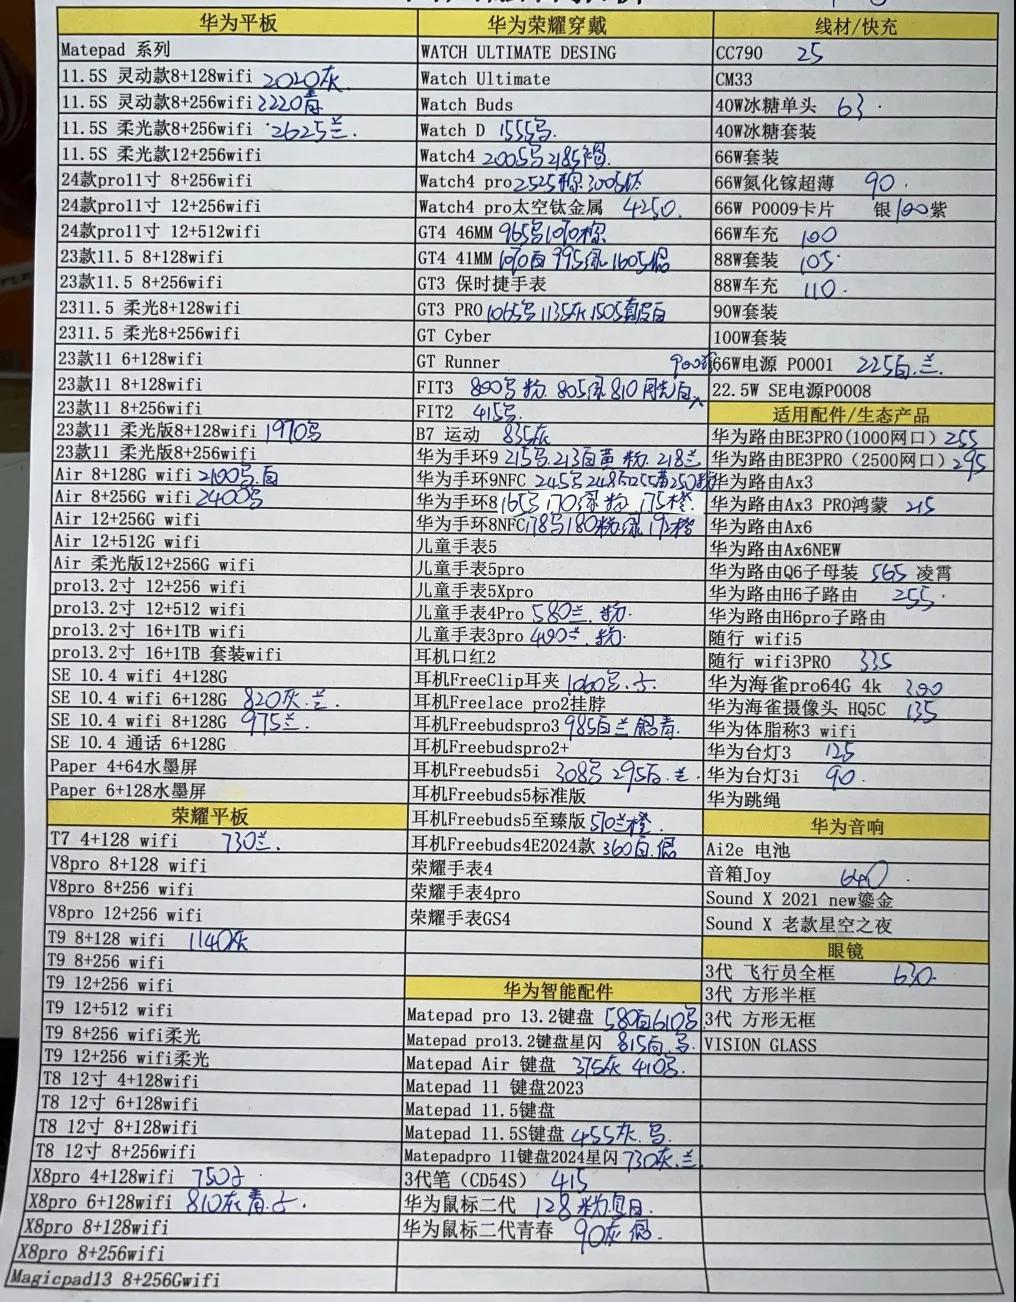 华为平板
Matepad 系列
11.5S 灵动款8+128wifi 2020灰
11.5S 灵动款8+256wifi 2220青
11.5S 柔光款8+256wifi 2625兰.
11.5S 柔光款12+256wifi
24款pro11寸 8+256wifi
24款pro11寸 12+256wifi
24款pro11寸 12+512wifi
23款11.5 8+128wifi
23款11.5 8+256wifi
2311.5 柔光8+128wifi
2311.5 柔光8+256wifi
23款11 6+128wifi
23款11 8+128wifi
23款11 8+256wifi
23款11 柔光版8+128wifi 1970
23款11 柔光版8+256wifi
Air 8+128G wifi 2100
Air 8+256G wifi 2400
Air 12+256G wifi
Air 12+512G wifi
Air 柔光版12+256G wifi
pro13.2寸 12+256 wifi
pro13.2寸 12+512 wifi
pro13.2寸 16+1TB wifi
pro13.2寸 16+1TB 套装wifi
SE 10.4 wifi 4+128G
SE 10.4 wifi 6+128G 820灰.兰.
SE 10.4 wifi 8+128G 975兰.
SE 10.4 通话 6+128G
Paper 4+64水墨屏
Paper 6+128水墨屏
荣耀平板
T7 4+128 wifi 730兰.
V8pro 8+128 wifi
V8pro 8+256 wifi
V8pro 12+256 wifi
T9 8+128 wifi 1140灰
T9 8+256 wifi
T9 12+256 wifi
T9 12+512 wifi
T9 8+256 wifi柔光
T9 12+256 wifi柔光
T8 12寸 4+128wifi
T8 12寸 6+128wifi
T8 12寸 8+128wifi
T8 12寸 8+256wifi
X8pro 4+128wifi 750
X8pro 6+128wifi 810灰青.
X8pro 8+128wifi
X8pro 8+256wifi
Magicpad13 8+256Gwifi
华为荣耀穿戴
WATCH ULTIMATE DESING
Watch Ultimate
Watch Buds
Watch D 1555
Watch4 2005 2185
Watch4 pro 2525 3005
Watch4 pro太空钛金属 4250.
GT4 46MM 965 1070
GT4 41MM 1070白 995 1605
GT3 保时捷手表
GT3 PRO 1065 1135灰 1505
GT Cyber
GT Runner 900
FIT3 800 粉. 805 810
FIT2 415
B7 运动 835灰
华为手环9 215 213白黄 粉. 218兰
华为手环9NFC 245
华为手环8 165 170 粉 175橙
华为手环8NFC 178 180粉 195橙
儿童手表5
儿童手表5pro
儿童手表5Xpro
儿童手表4Pro 580兰.粉.
儿童手表3pro 400兰.粉.
耳机口红2
耳机FreeClip耳夹 1060
耳机Freelace pro2挂脖
耳机Freebudspro3 985白兰 青.
耳机Freebudspro2+
耳机Freebuds5i 308 295白.兰.
耳机Freebuds5标准版
耳机Freebuds5至臻版 510兰橙.
耳机Freebuds4E2024款 360白.
荣耀手表4
荣耀手表4pro
荣耀手表GS4
华为智能配件
Matepad pro 13.2键盘 580白 610
Matepad pro13.2键盘星闪 815白.
Matepad Air 键盘 375灰 410
Matepad 11 键盘2023
Matepad 11.5键盘
Matepad 11.5S键盘 455灰.
Matepadpro 11键盘2024星闪 730灰.兰
3代笔（CD54S） 415
华为鼠标二代 128 粉.
华为鼠标二代青春 90灰
线材/快充
CC790 25
CM33
40W冰糖单头 63.
40W冰糖套装
66W套装
66W氮化镓超薄 90.
66W P0009卡片 银100紫
66W车充 100
88W套装 105
88W车充 110.
90W套装
100W套装
66W电源 P0001 225白.兰.
22.5W SE电源P0008
适用配件/生态产品
华为路由BE3PRO(1000网口) 255
华为路由BE3PRO（2500网口) 295
华为路由Ax3
华为路由Ax3 PRO鸿蒙 215
华为路由Ax6
华为路由Ax6NEW
华为路由Q6子母装 565 凌霄
华为路由H6子路由 255.
华为路由H6pro子路由
随行 wifi5
随行 wifi3PRO 335
华为海雀pro64G 4k 300
华为海雀摄像头 HQ5C 135
华为体脂称3 wifi
华为台灯3 125
华为台灯3i 90.
华为跳绳
华为音响
Ai2e 电池
音箱Joy 640.
Sound X 2021 new鎏金
Sound X 老款星空之夜
眼镜
3代 飞行员全框 630.
3代 方形半框
3代 方形无框
VISION GLASS